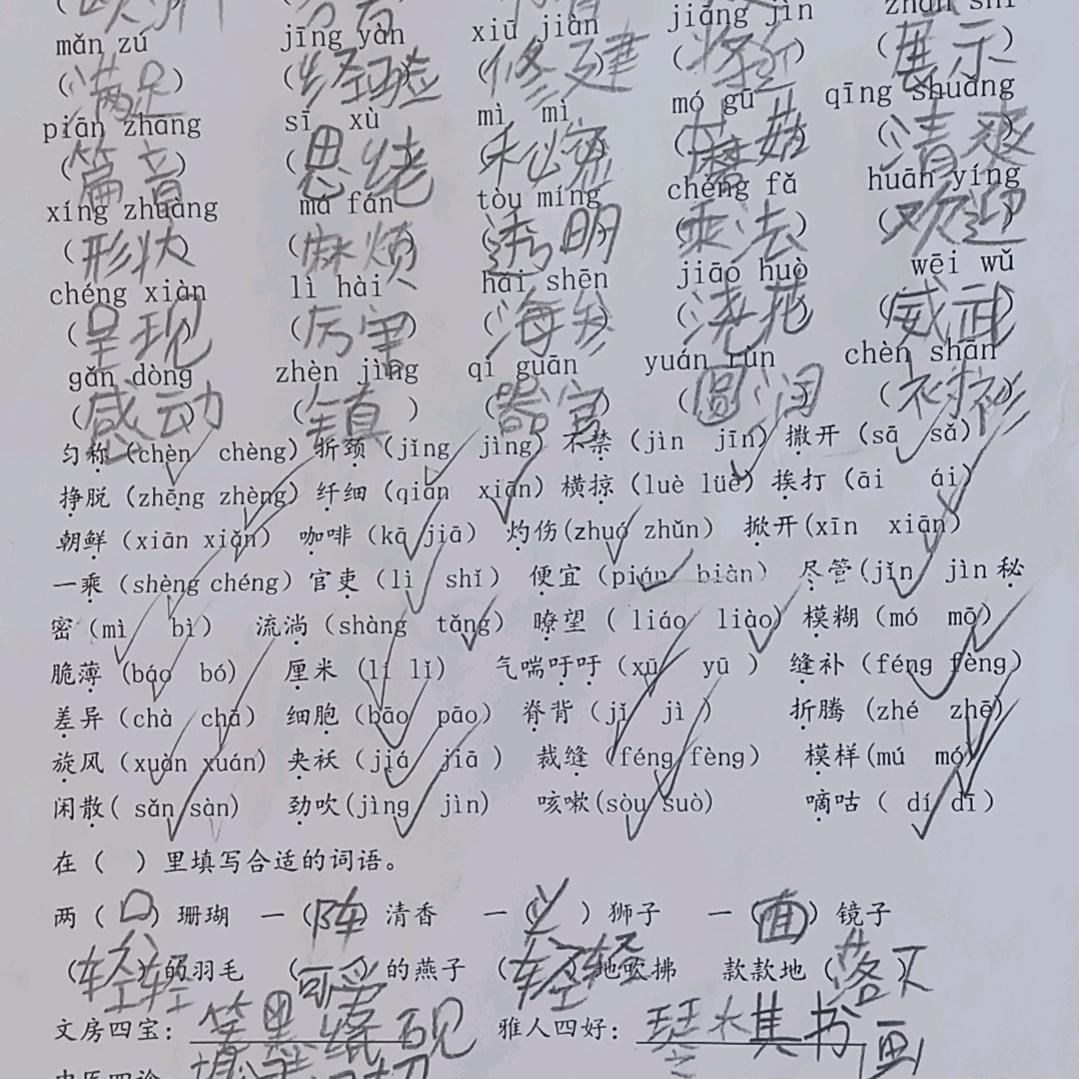 mǎn zú jīng yàn xiū jiàn jiāng jìn zhǎn shì
(满足) (经验) (修建) (将近) (展示)
piān zhāng sī xù mì mì mó gū qīng shuǎng
(篇章) (思绪) 秘密 (蘑菇) (清爽)
xíng zhuàng má fán tòu míng chéng fǎ huān yíng
(形状) (麻烦) (透明) (乘法) (欢迎)
chéng xiàn lì hài hǎi shēn jiāo huò wēi wǔ
(呈现) (厉害) (海参) (浇) (威武)
gǎn dòng zhèn jìng qì guān yuán rùn chèn shān
(感动) (镇) (器官) (圆润) (衬衫)
匀称（chèn chèng）折颈（jǐng jìng）不禁（jìn jīn）撒开（sā sǎ）
挣脱（zhēng zhèng）纤细（qiān xiān）横掠（luè lüè）挨打（āi ái）
朝鲜（xiān xiǎn） 咖啡（kā jiā） 灼伤(zhuó zhǔn） 掀开(xīn xiān）
一乘（shèng chéng）官吏（lì shǐ） 便宜（pián biàn） 尽管（jǐn jìn 秘
密（mì bì） 流淌（shàng tǎng） 瞭望（ liáo liào）模糊（mó mō）
脆薄（báo bó） 厘米（lí lǐ） 气喘吁吁（xū yū ） 缝补（féng fèng）
差异（chà chā） 细胞（bāo pāo） 脊背（jǐ jì ） 折腾（zhé zhē）
旋风（xuàn xuán) 夹袄（jiá jiā ） 裁缝（féng fèng） 模样(mú mó）
闲散( sǎn sàn） 劲吹(jìng jìn) 咳嗽(sòu suò) 嘀咕（ dí dī）
在（ ）里填写合适的词语。
两（口）珊瑚 一（阵）清香 一（ ）狮子 一（面）镜子
（轻轻）的羽毛 （可爱）的燕子 （轻轻）地吹拂 款款地（落下
文房四宝： 笔墨 砚 雅人四好： 琴 棋书画